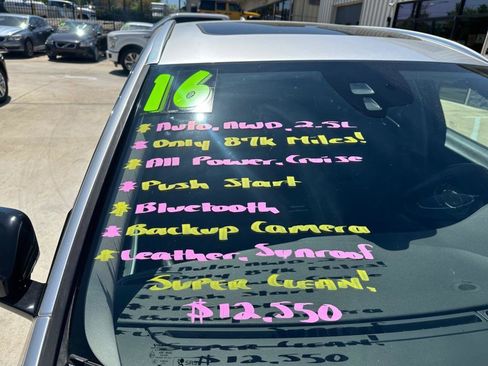 16
* Auto, AWD, 2.5L
* Only 87k Miles!
* All Power, Cruise
* Push Start
* Bluetooth
* Backup Camera
* Leather, Sunroof
Super Clean!
$12,550